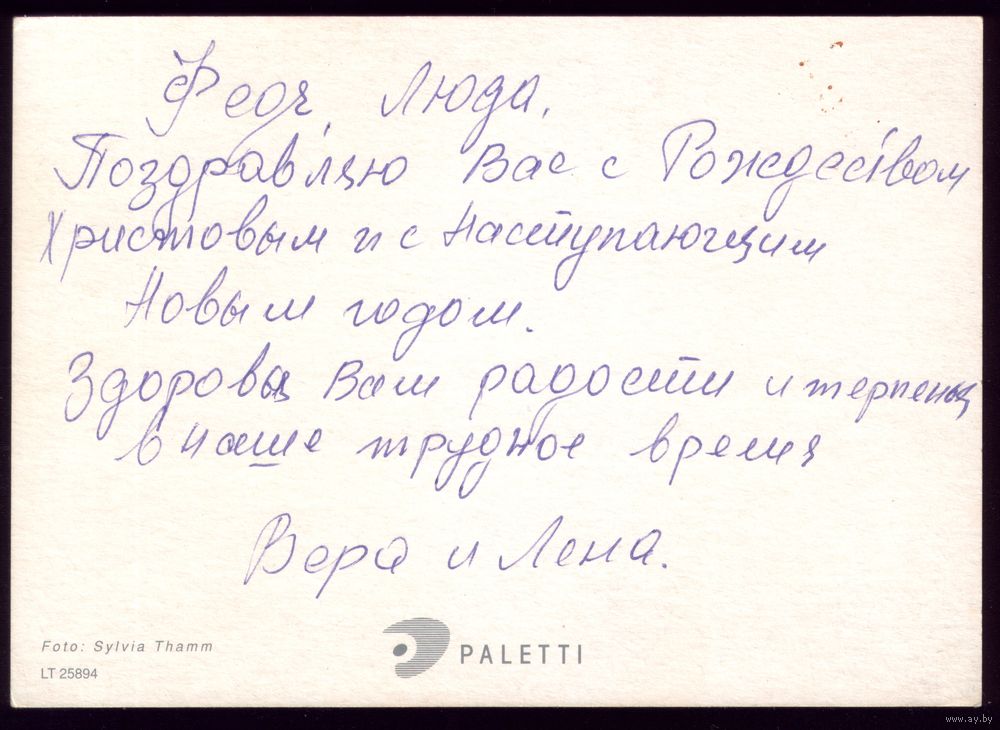 Федя, Люда,
Поздравляю Вас с Рождеством
Христовым и с Наступающим
Новым годом.
Здоровья Вам радости и терпенья
в наше трудное время
Вера и Лена.
Foto: Sylvia Thamm
LT 25894
PALETTI
www.ay.by